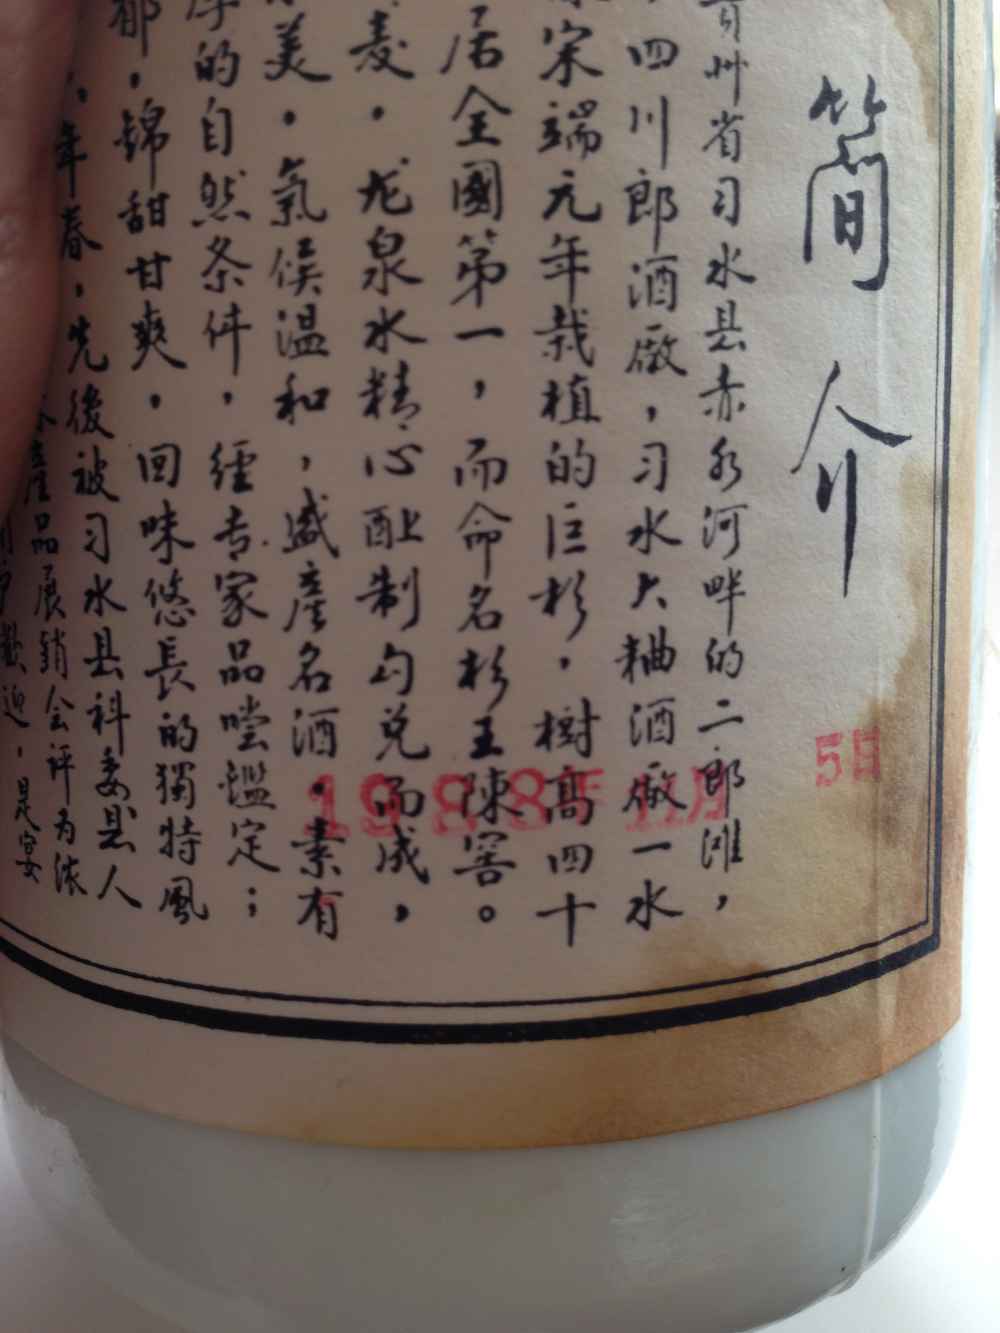 簡介
州省习水县赤水河畔的二郎滩，
四川郎酒廠，习水大粬酒廠一水
宋端元年栽植的巨杉，樹高四十
居全國第一，而命名杉王陳窖。
麦，龙泉水精心酝制勾兑而成，
美。氣侯温和，盛產名酒。素有
的自然条件，經专家品嚐鑑定；
郁，錦甜甘爽，回味悠長的獨特風
年春，先後被习水县科委县人
產品展銷会评为浓
歡迎，是宴
1988年11月5日